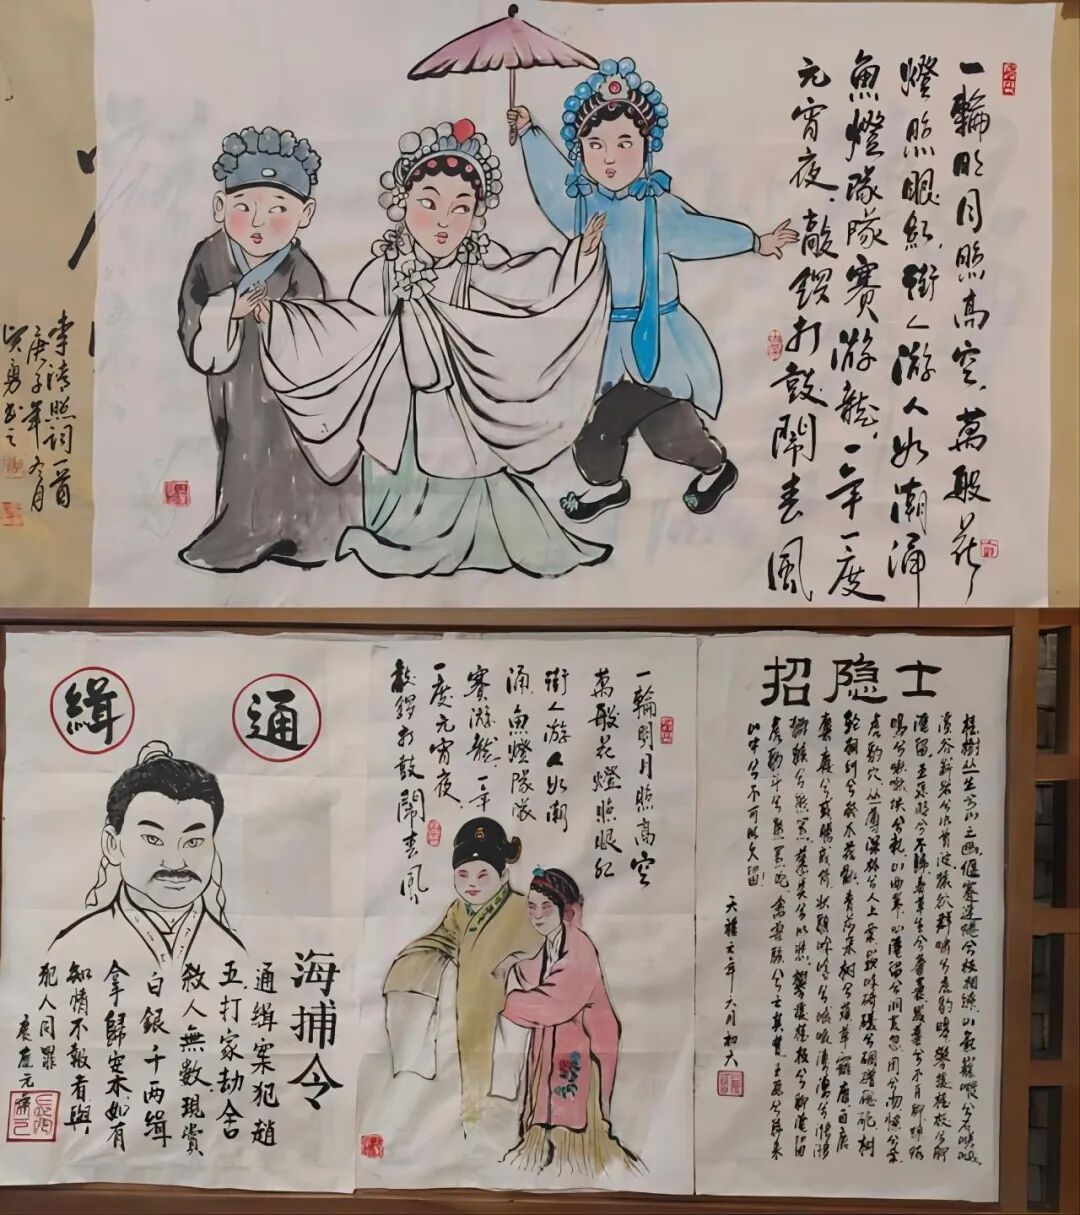 一輪明月照高空，萬般花
燈照眼紅，街人游人如潮涌
魚燈隊隊賽游龍，一年一度
元宵夜，敲鑼打鼓鬧春風
李清照詞一首
庚子年冬月
勇書之
通緝
海捕令
通緝案犯趙
五打家劫舍
殺人無數現賞
白銀千兩緝
拿歸案如有
知情不報者與
犯人同罪
元年
一輪明月照高空
萬般花燈照眼紅
街人游人如潮
涌魚燈隊隊
賽游龍一年
一度元宵夜
敲鑼打鼓鬧春風
招隐士
桂樹丛生兮山之幽，偃蹇連蜷兮枝相繚，山氣巃嵸兮石嵯峨
溪谷嶄岩兮水曾波，猿狖群嘯兮虎豹嗥，攀援桂枝兮聊
淹留，王孫游兮不歸，春草生兮萋萋，歲暮兮不自聊，蟪蛄
鳴兮啾啾，坱兮軋，山曲岪，心淹留兮恫荒忽，罔兮沕，憭兮栗
虎豹穴，丛薄深林兮人上栗，嶔岑碕礒兮碅磳磈硊，樹
轮相糾兮林木茷骫，青莎杂樹兮薠草靃靡，白鹿
麏麚兮或騰或倚，狀貌崟崟兮峨峨，凄凄兮漇漇
獼猴兮熊羆，慕類兮以悲，攀援桂枝兮聊淹留
虎豹斗兮熊羆咆，禽獸駭兮亡其曹，王孫兮歸來
山中兮不可以久留！
天禧元年六月初六